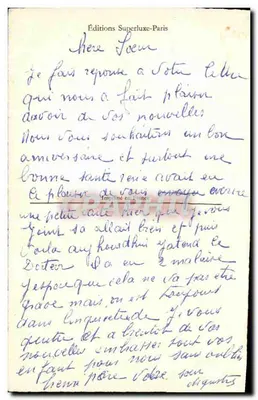 Éditions Superluxe-Paris
Mère Sœur
Je fais réponse a votre lettre
qui nous a fait plaisir
davoir de vos nouvelles
Nous vous souhaitons un bon
anniversaire et surtout une
bonne santé
le plaisir de vous envoyer
une petite
Joint sa allait bien et puis
voila aujourdhui jatend le
Docteur Il a eu 2 malaise
Jespere que cela ne va pas être
grave mais on est toujours
dans linquietude Je vous
quitte et a bientot de vos
nouvelles embrasser tout vos
enfant pour nous sans oublier
votre